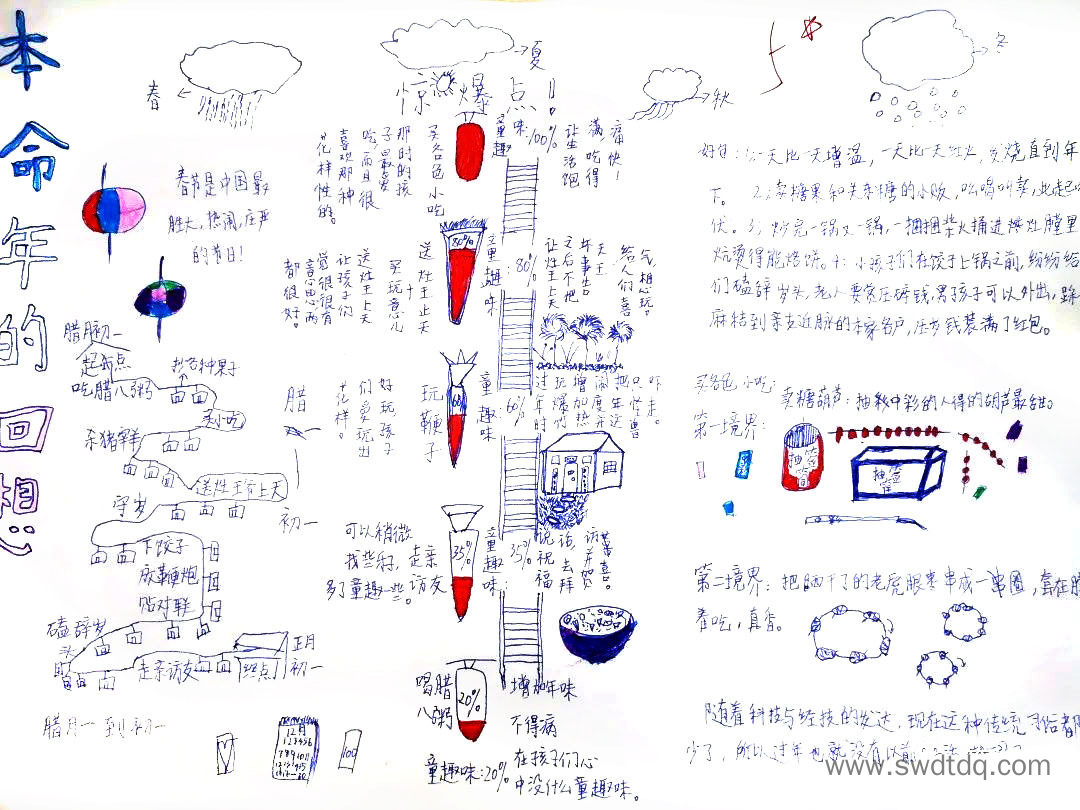 本命年的回想
春
夏
秋
冬
惊爆点！
春节是中国最
胜大，热闹，庄严
的节日！
腊月初一
起点
吃腊八粥
炒各种果子
买小吃
杀猪宰羊
送灶王爷上天
守岁
下饺子
放鞭炮
贴对联
磕辞岁
头
走亲访友
终点
正月
初一
腊
初一
腊月一到初一
12月
100
买各色小吃
那时的孩
子最爱
吃，而且很
喜欢那种
花样性的。
童趣味:100%
让生活饱
满，吃得
痛快！
送灶王上天
买玩意儿
送灶王上天
让孩子们
觉很很有
意思
都很好。
80%
童趣味:80%
让灶王上天
之后不把
坏事告
天王
给人们喜
气，相心玩。
玩鞭子
好玩孩子
们爱玩出
花样。
60%
童趣味:60%
过年时
玩爆
增加热
闹度并
把年这
只怪兽
吓走。
可以稍微
找些乐子，走亲
多了童趣一些。访友
35%
童趣味:35%
说祝福
话，去拜
访并贺
喜。
喝腊
八粥
20%
增加年味
不得病
童趣味:20%
在孩子们心
中没什么童趣味。
一天比一天增温，一天比一天红火，
下。2、卖糖果和关东糖的小贩，吆喝叫卖，此起
伏。3、炒完一锅又一锅，一捆捆柴火捅进烘灶膛里
炕烫得能烙饼。4、小孩子们在饺子上锅之前，纷纷给
们磕辞岁头，老人要赏压碎钱，男孩子可以外出，踩
麻秸到亲支近脉的
家各户，压岁钱装满了红包。
买各色小吃：
卖糖葫芦：抽彩中彩的人得的葫芦最甜。
第一境界：
抽签筒
抽签
第二境界：把晒干了的老虎眼枣串成一串圈，套在脖
着吃，真香。
随着科技与经技的发达，现在这种传统习俗都
少了，所以过年也就没有以前
www.swdtdq.com